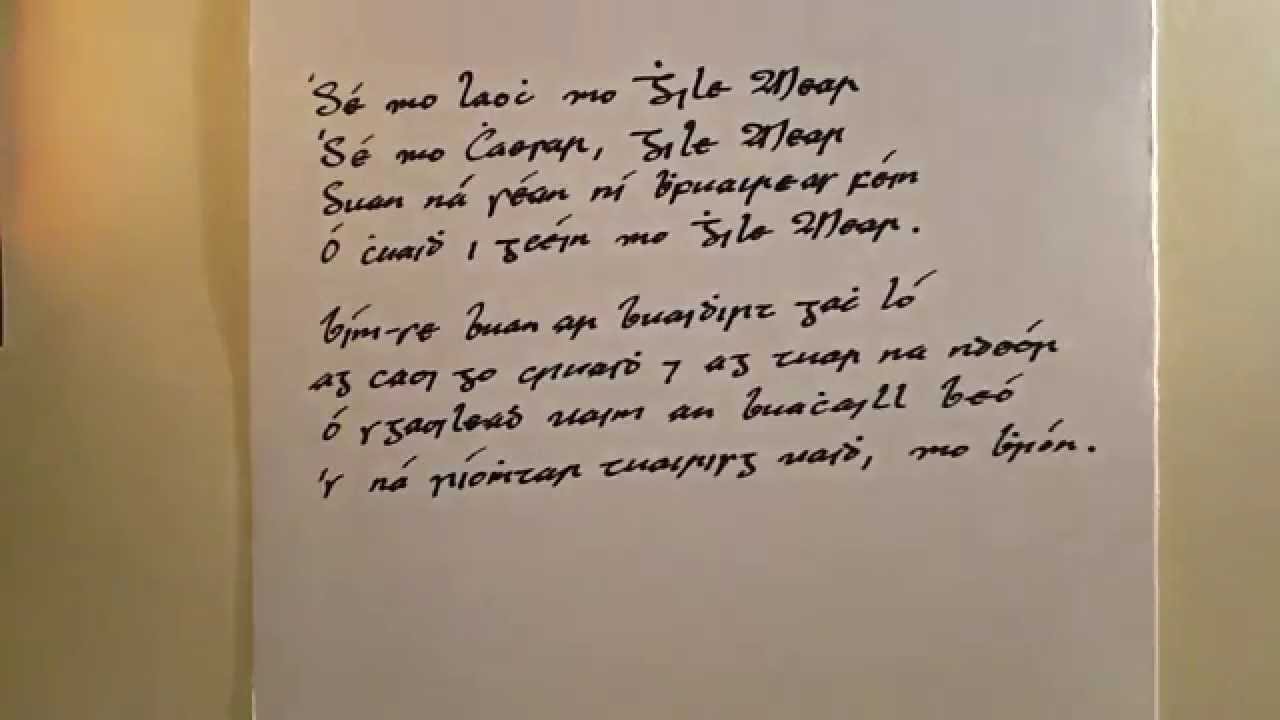 'Sé mo laoċ mo Ġile Mear
'Sé mo Ċaesar, Gile Mear
Suan ná séan ní ḃfuaireas féin
Ó ċuaiḋ i gcéin mo Ġile Mear.
Bím-se buan ar buaiḋirt gaċ ló
ag caoi go cruaiḋ ⁊ ag tuar na ndeór
ó sgaoileaḋ uaim an buaċaill beó
's ná ríoṁtar tuairisg uaiḋ, mo ḃrón.